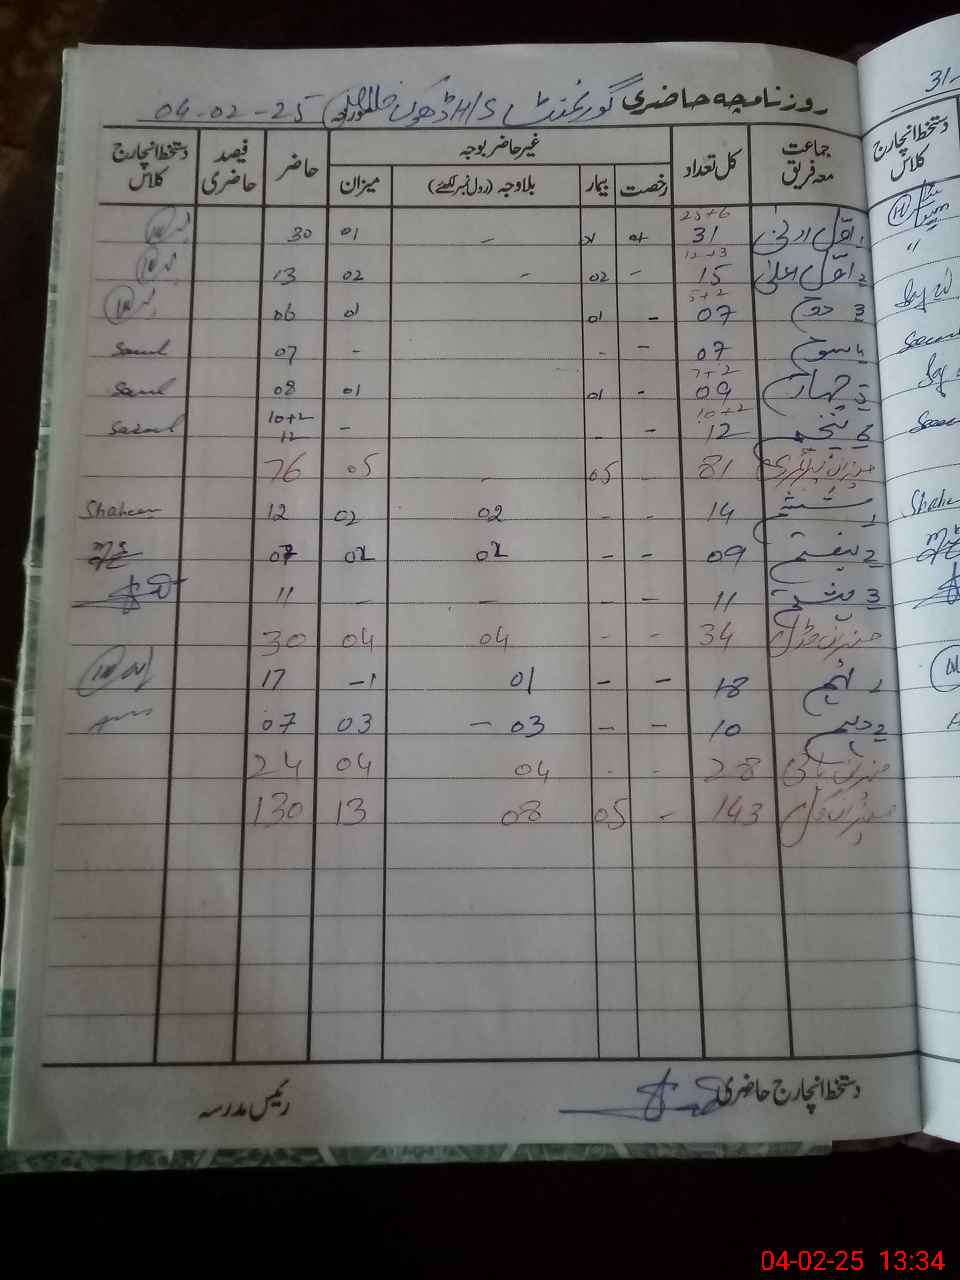 روزنامچہ حاضری گورنمنٹ H/S ڈھوک 04-02-25
جماعت معہ فریق کل تعداد غیر حاضر بوجہ حاضر فیصد حاضری دستخط انچارج کلاس
رخصت بیمار بلاوجہ (رول نمبر لکھئے) میزان
25+6
1 اوّل ادنیٰ 31 - 01 30
12+3
2 اوّل اعلیٰ 15 - 02 - 02 13
5+2
3 دوم 07 - 01 01 06
4 سوم 07 - - - 07
7+2
5 چہارم 09 - 01 01 08
10+2 10+2
6 پنجم 12 - - - 12
میزان پرائمری 81 - 05 - 05 76
1 ششم 14 - - 02 02 12 Shaheen
2 ہفتم 09 - - 02 02 07
3 ہشتم 11 - - - - 11
میزان مڈل 34 - - 04 04 30
1 نہم 18 - - 01 -1 17
2 دہم 10 - - 03 03 07
میزان ہائی 28 - - 04 04 24
میزان کل 143 - 05 08 13 130
دستخط انچارج حاضری رئیس مدرسہ
31-
دستخط انچارج کلاس
"
04-02-25 13:34